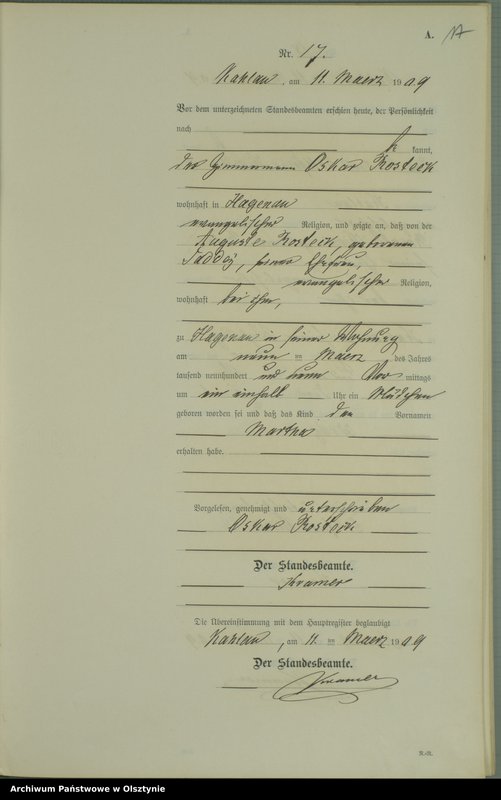 A. 17
Nr. 17.
Kahlau, am 11. Maerz 1909
Vor dem unterzeichneten Standesbeamten erschien heute, der Persönlichkeit
nach
be kannt,
der Zimmermann Oskar Rosteck
wohnhaft in Hagenau
evangelischer Religion, und zeigte an, daß von der
Auguste Rosteck, geborenen
seiner Ehefrau,
evangelischer Religion,
wohnhaft bei ihm,
zu Hagenau in seiner Wohnung
am neun ten Maerz des Jahres
tausend neunhundert und neun Vor mittags
um ein einhalb Uhr ein Mädchen
geboren worden sei und daß das Kind den Vornamen
Martha
erhalten habe.
Vorgelesen, genehmigt und unterschrieben
Oskar Rosteck
Der Standesbeamte.
Kramer
Die Übereinstimmung mit dem Hauptregister beglaubigt
Kahlau, am 11. ten Maerz 1909
Der Standesbeamte.
Kramer
Archiwum Państwowe w Olsztynie